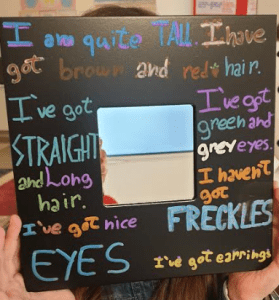 I am quite TALL. I have
got brown and red hair.
I've got
STRAIGHT
and Long
hair.
I've got
green and
grey eyes.
I haven't
got
FRECKLES
I've got nice
EYES
I've got earrings